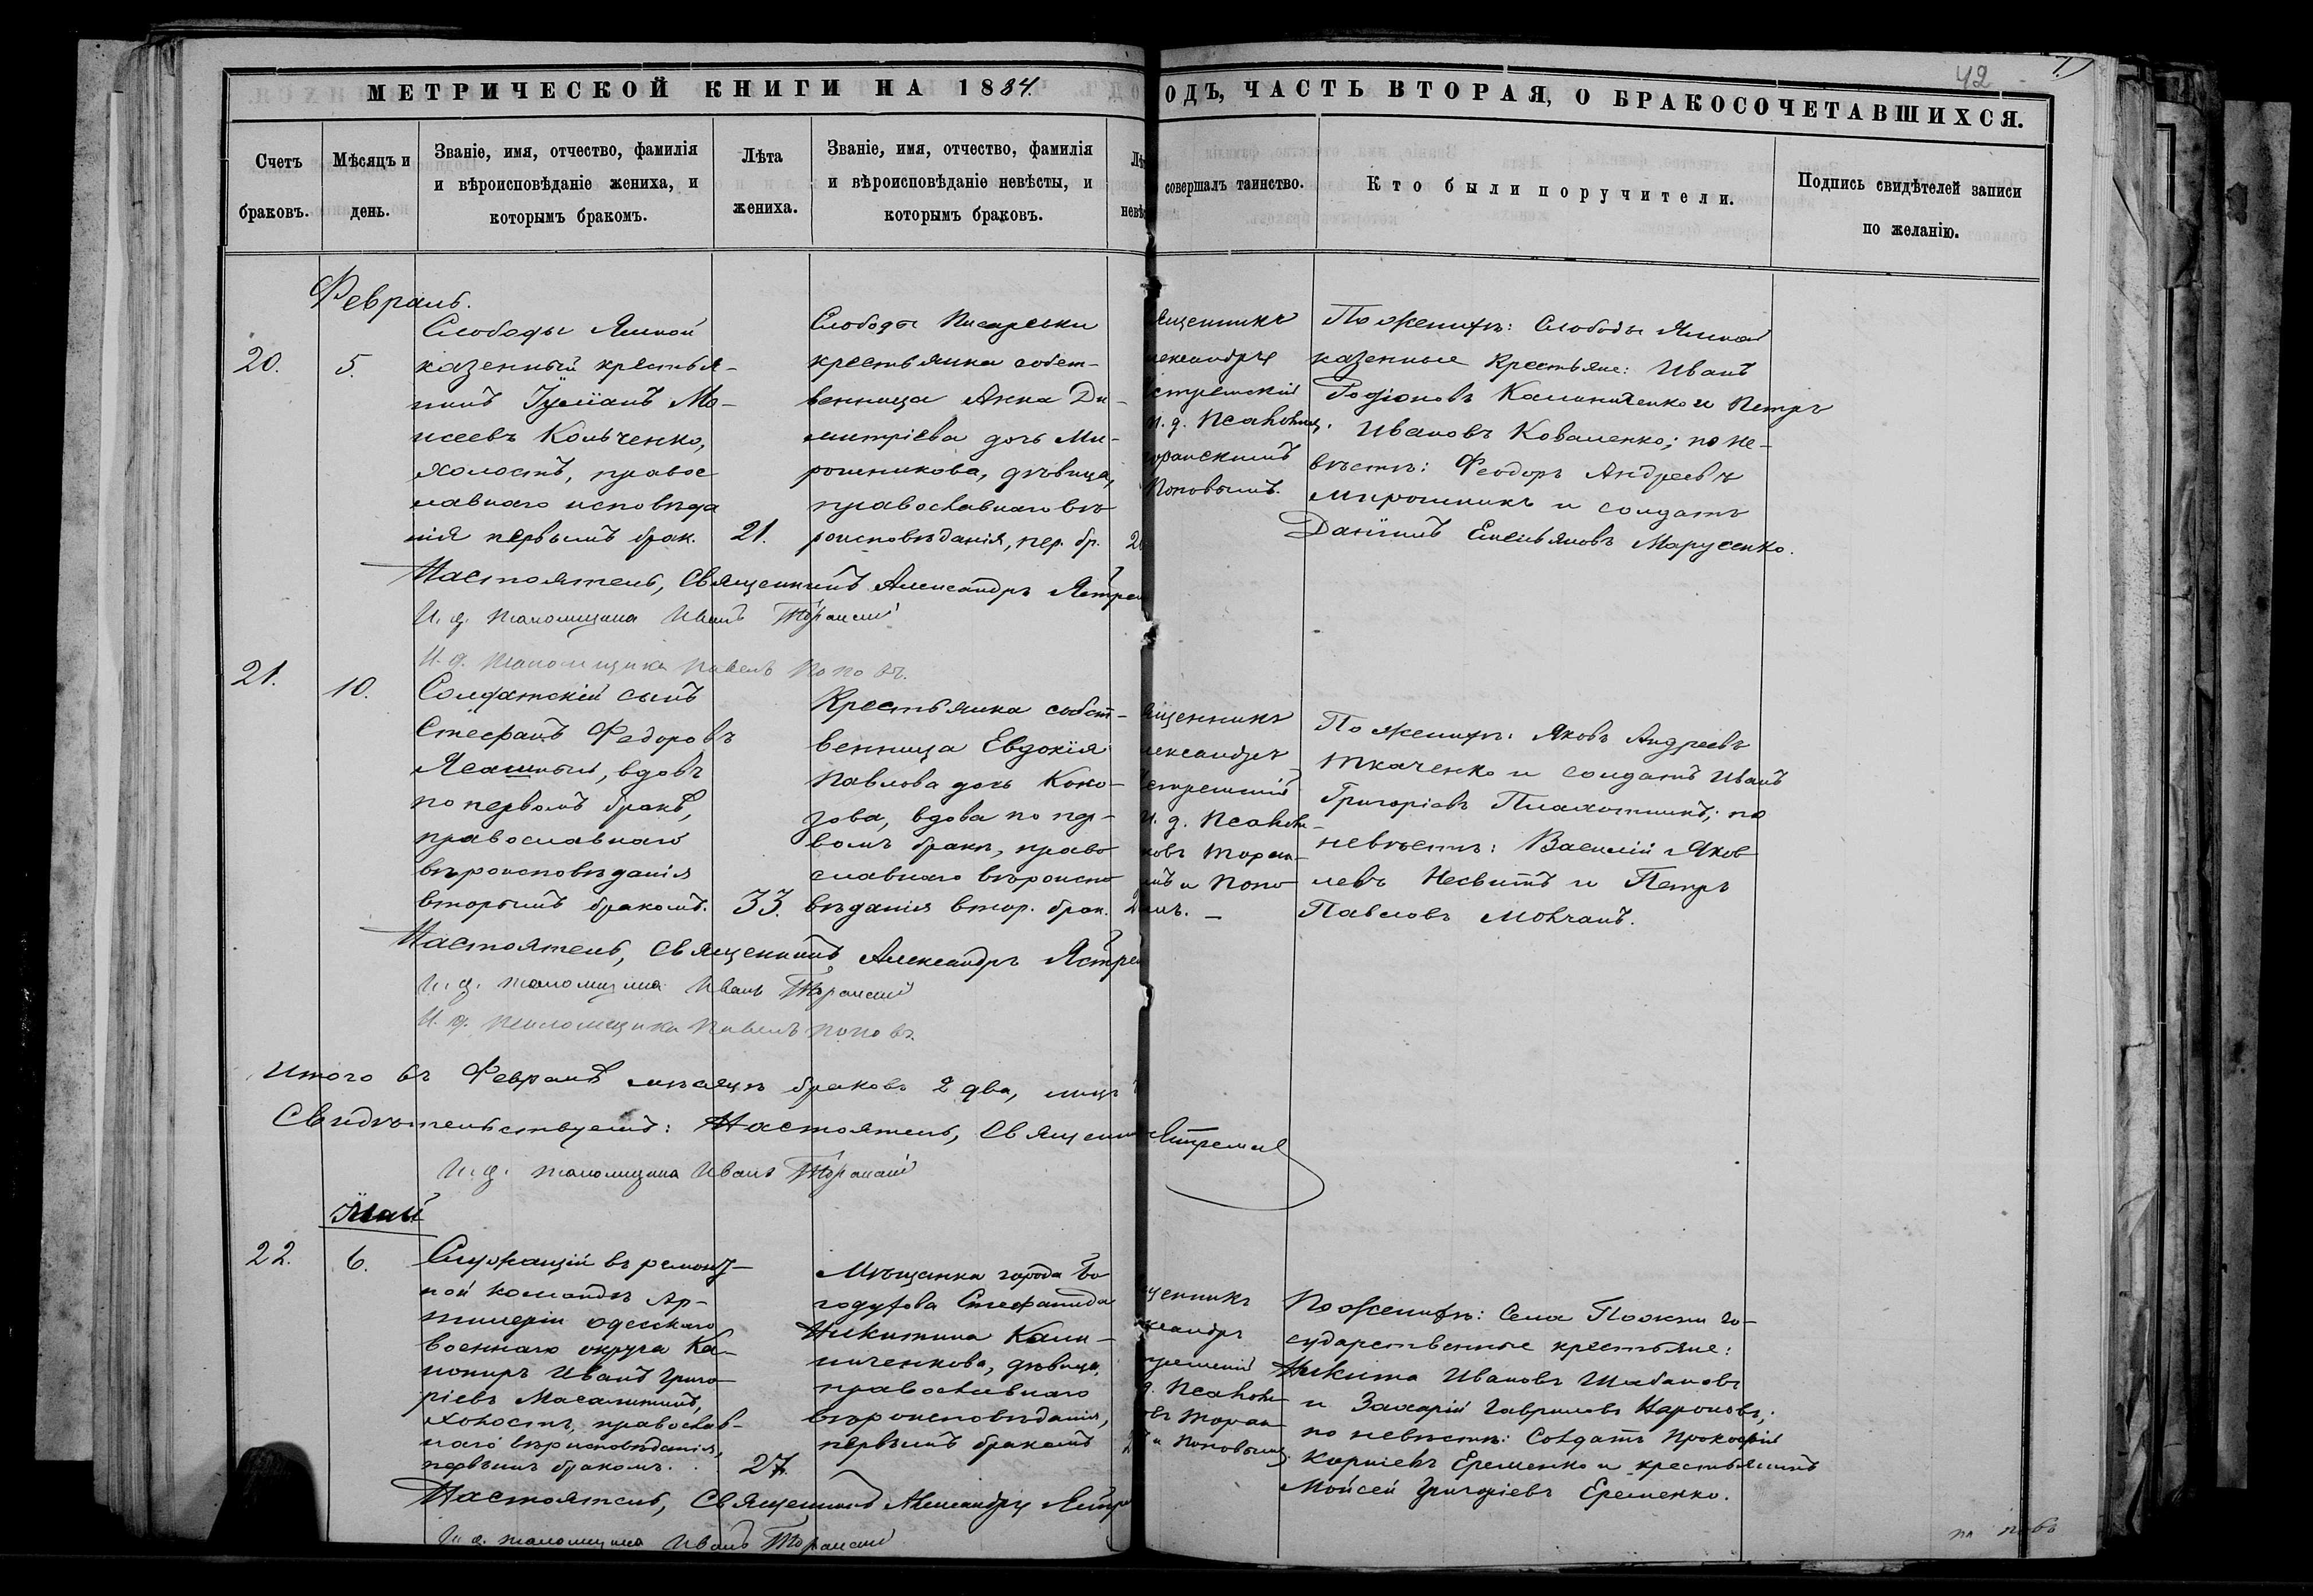 42
МЕТРИЧЕСКОЙ КНИГИ НА 1884
ОДЪ, ЧАСТЬ ВТОРАЯ, О БРАКОСОЧЕТАВШИХСЯ.
Счетъ
браковъ.
Мѣсяцъ и
день.
Званіе, имя, отчество, фамилія
и вѣроисповѣданіе жениха, и
которымъ бракомъ.
Лѣта
жениха.
Званіе, имя, отчество, фамилія
и вѣроисповѣданіе невѣсты, и
которымъ браковъ.
Лѣ
невѣ
совершалъ таинство.
Кто были поручители.
Подпись свидѣтелей записи
по желанію.
Февраль.
20.
5.
Слободы Ямной
казенный крестья-
нинъ Іуліанъ Мо-
исеевъ Кольченко,
холостъ, правос
лавнаго исповѣда
нія первымъ брак.
21.
Слободы Писаревки
крестьянка собст-
венница Анна Ди-
митріева дочь Ми-
рошникова, дѣвица,
православнаго вѣ
роисповѣданія, пер. бр.
2
ященникъ
лександръ
стремскій
и. д. Псаломщ.
торанскимъ
Поповымъ.
По женихѣ: Слободы Ямной
казенные крестьяне: Иванъ
Родіоновъ Калиниченко и Петръ
Ивановъ Коваленко; по не-
вѣстѣ: Феодоръ Андреевъ
Мирошникъ и солдатъ
Даніилъ Емельяновъ Марусенко.
Настоятель, Священникъ Александръ Ястрем
И. д. псаломщика Иванъ Торанскій
И. д. псаломщика Павелъ Поповъ.
21.
10.
Солдатскій сынъ
Стефанъ Федоровъ
Ясашный, вдовъ
по первомъ бракѣ,
православнаго
вѣроисповѣданія
вторымъ бракомъ.
33.
Крестьянка собст-
венница Евдокія
Павлова дочь Коно-
зова, вдова по пер-
вомъ бракѣ, право
славнаго вѣроиспо
вѣданія втор. брак.
2
ященникъ
лександръ
стремскій
и. д. Псалом-
ковъ Торан-
мъ и Попо
мъ. –
По женихѣ: Яковъ Андреевъ
Ткаченко и солдатъ Иванъ
Григоріевъ Плахотникъ; по
невѣстѣ: Василій Яков
левъ Несвитъ и Петръ
Павловъ Молчанъ.
Настоятель, Священникъ Александръ Ястрем
И. д. псаломщика Иванъ Торанскій
И. д. псаломщика Павелъ Поповъ.
Итого въ Февралѣ мѣсяцѣ браковъ 2 два, лицъ
Свидѣтельствуемъ: Настоятель, Священник Ястремск
И. д. псаломщика Иванъ Торанскій
Май
22.
6.
Служащій въ ремонт-
ной командѣ Ар-
тилеріи одесскаго
военнаго округа Ка-
нониръ Иванъ Григо-
ріевъ Масалитинъ,
холостъ, православ-
наго вѣроисповѣданія,
первымъ бракомъ.
27.
Мѣщанка города Бо
годухова Стефанида
Никитина Кали-
ниченкова, дѣвица,
православнаго
вѣроисповѣданія,
первымъ бракомъ
2
щенникъ
ксандръ
тремскій
д. Псалом-
овъ Торан
ъ и Поповымъ
По женихѣ: Села Покти го-
сударственные крестьяне:
Никита Ивановъ Шабановъ
и Захарій Гавриловъ Нароновъ;
по невѣстѣ: Солдатъ Прокофій
Корніевъ Еременко и крестьянинъ
Моисей Григоріевъ Еременко.
Настоятель, Священникъ Александръ Ястр
И. д. псаломщика Иванъ Торанскій